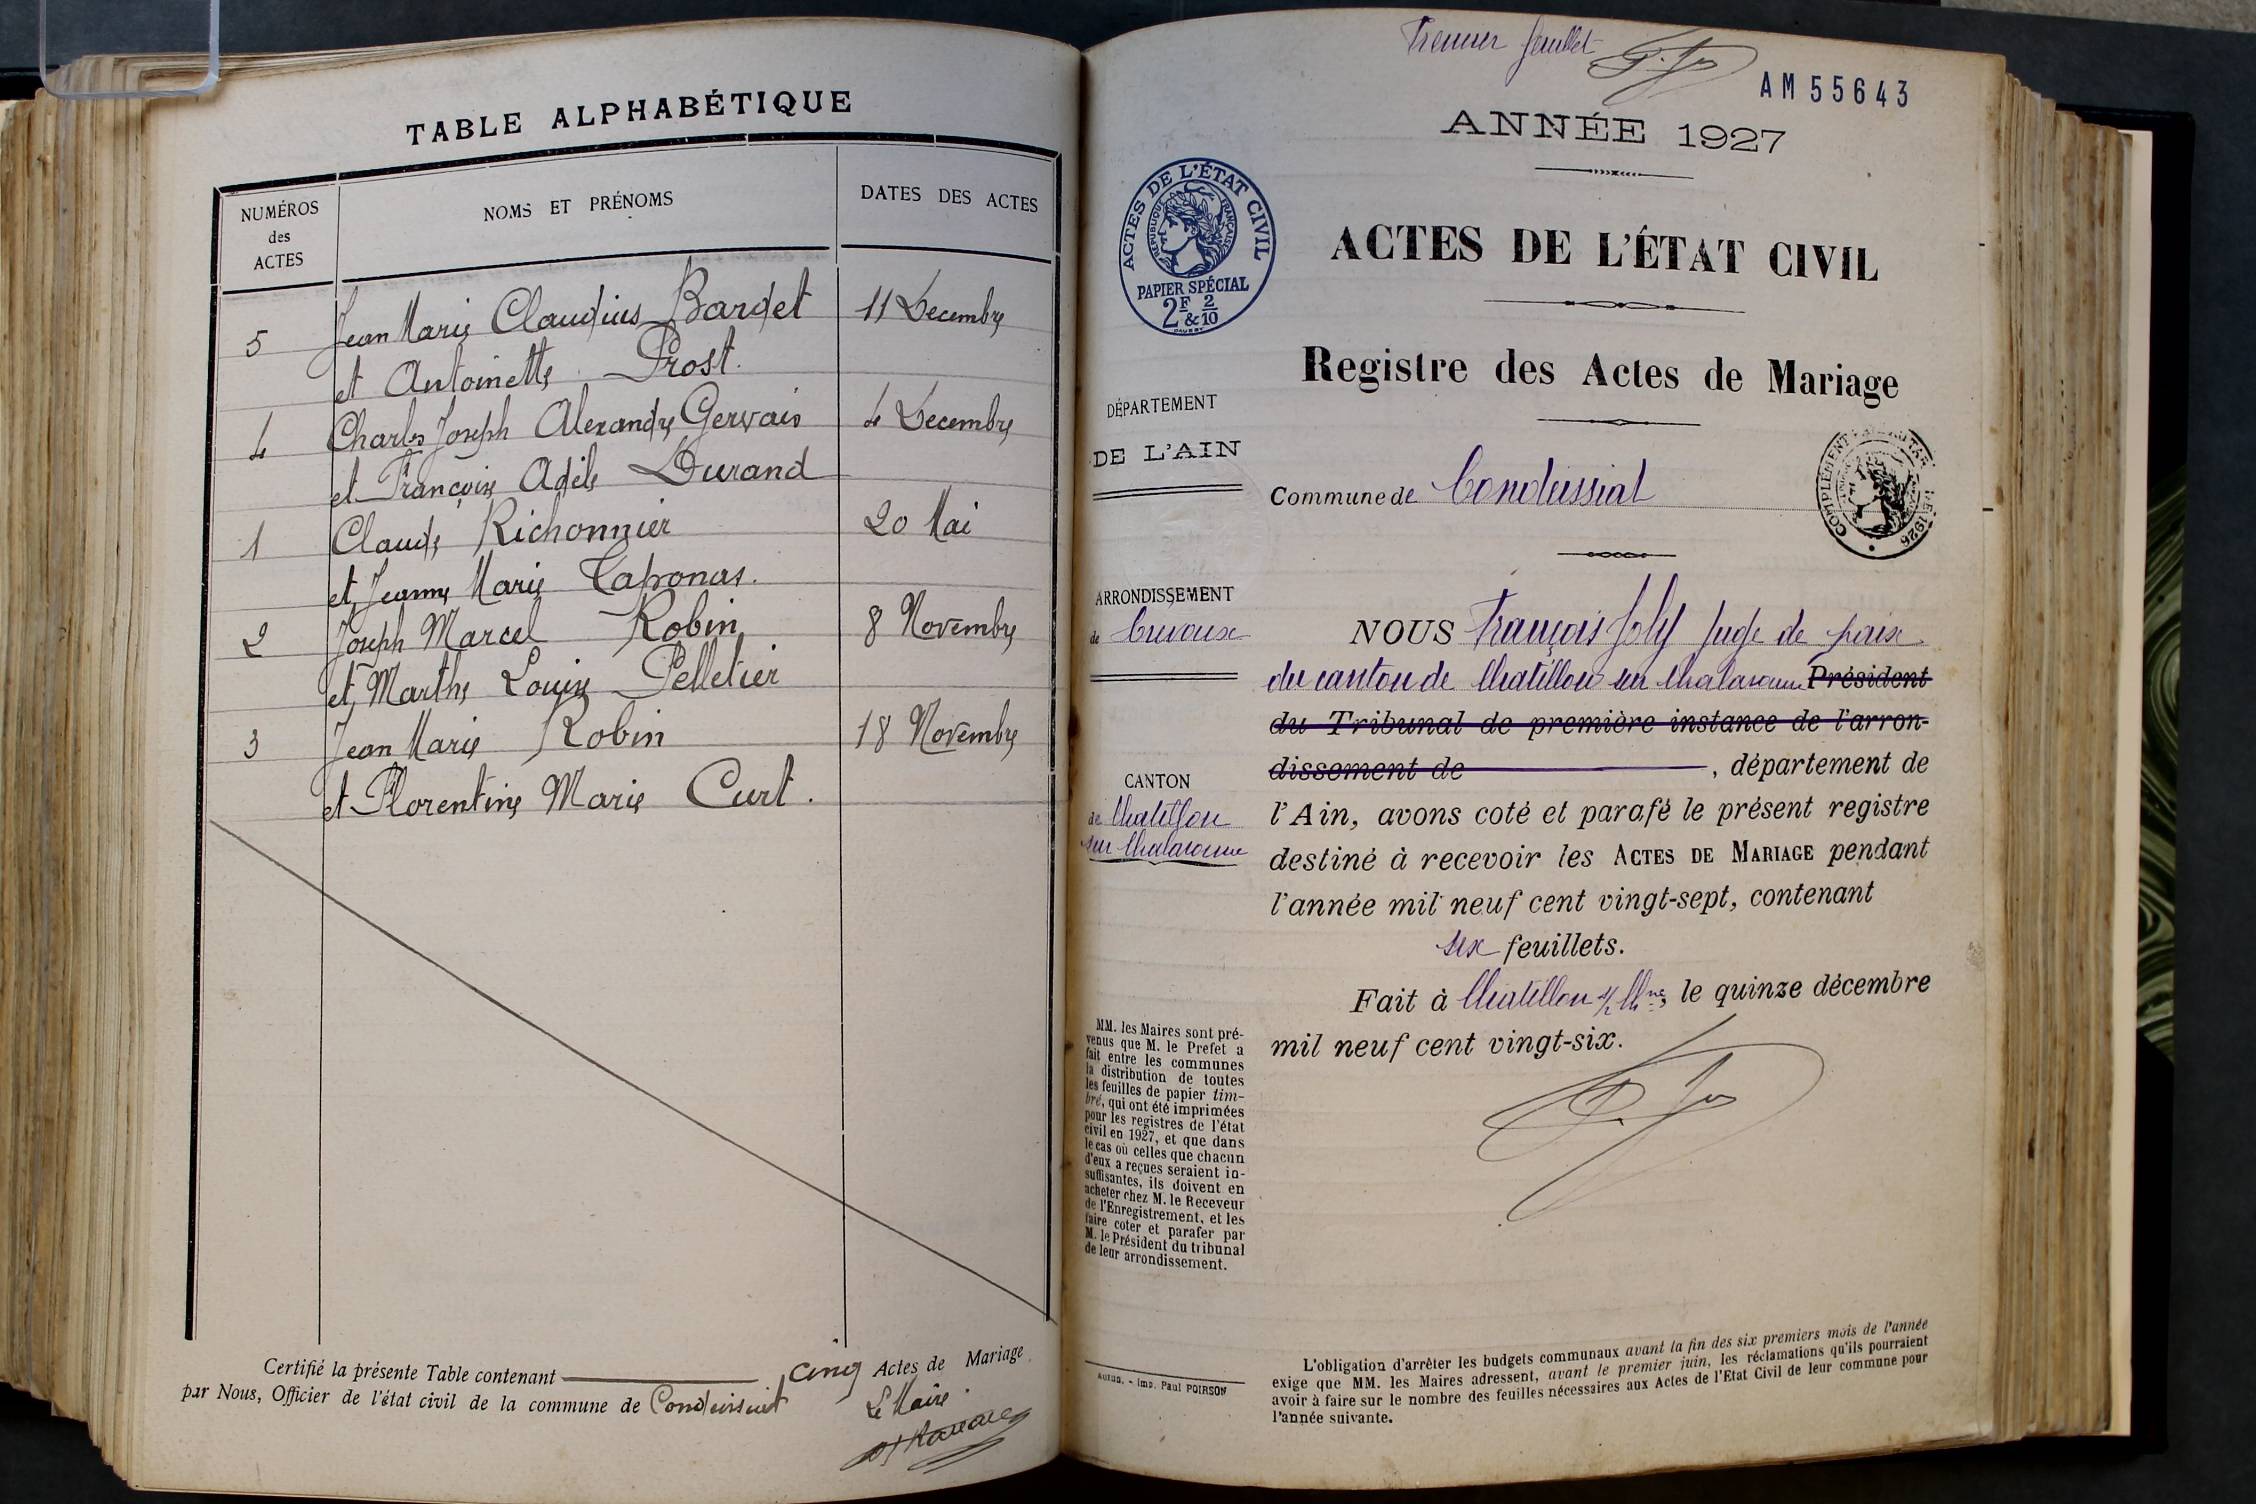 TABLE ALPHABÉTIQUE
NUMÉROS
des
ACTES
NOMS ET PRÉNOMS
DATES DES ACTES
5 Jean Marie Claudius Bardet 11 Decembre
et Antoinette Prost.
4 Charles Joseph Alexandre Gervais 4 Decembre
et Françoise Adèle Durand
1 Claude Richonnier 20 Mai
et Jeanne Marie Taponas.
2 Joseph Marcel Robin 8 Novembre
et Marthe Louise Pelletier
3 Jean Marie Robin 18 Novembre
et Florentine Marie Curt.
Certifié la présente Table contenant cinq Actes de Mariage
par Nous, Officier de l'état civil de la commune de Condeissiat
Le Maire.
Premier feuillet
AM 55643
ANNÉE 1927
ACTES DE L'ÉTAT CIVIL
RÉPUBLIQUE FRANÇAISE
PAPIER SPÉCIAL
2F & 2/10
ACTES DE L'ÉTAT CIVIL
Registre des Actes de Mariage
DÉPARTEMENT
DE L'AIN
Commune de Condeissiat
COMPLÉMENT
1926
ARRONDISSEMENT
de Trévoux
CANTON
de Chatillon
sur Chalaronne
NOUS François Joly Juge de paix
du canton de Chatillon sur Chalaronne Président
du Tribunal de première instance de l'arron-
dissement de , département de
l'Ain, avons coté et parafé le présent registre
destiné à recevoir les ACTES DE MARIAGE pendant
l'année mil neuf cent vingt-sept, contenant
six feuillets.
Fait à Chatillon s/ Chne, le quinze décembre
mil neuf cent vingt-six.
MM. les Maires sont pré-
venus que M. le Prefet a
fait entre les communes
la distribution de toutes
les feuilles de papier tim-
bré, qui ont été imprimées
pour les registres de l'état
civil en 1927, et que dans
le cas où celles que chacun
d'eux a reçues seraient in-
suffisantes, ils doivent en
acheter chez M. le Receveur
de l'Enregistrement, et les
faire coter et parafer par
M. le Président du tribunal
de leur arrondissement.
Autun. - Imp. Paul POIRSON
L'obligation d'arrêter les budgets communaux avant la fin des six premiers mois de l'année
exige que MM. les Maires adressent, avant le premier juin, les réclamations qu'ils pourraient
avoir à faire sur le nombre des feuilles nécessaires aux Actes de l'Etat Civil de leur commune pour
l'année suivante.